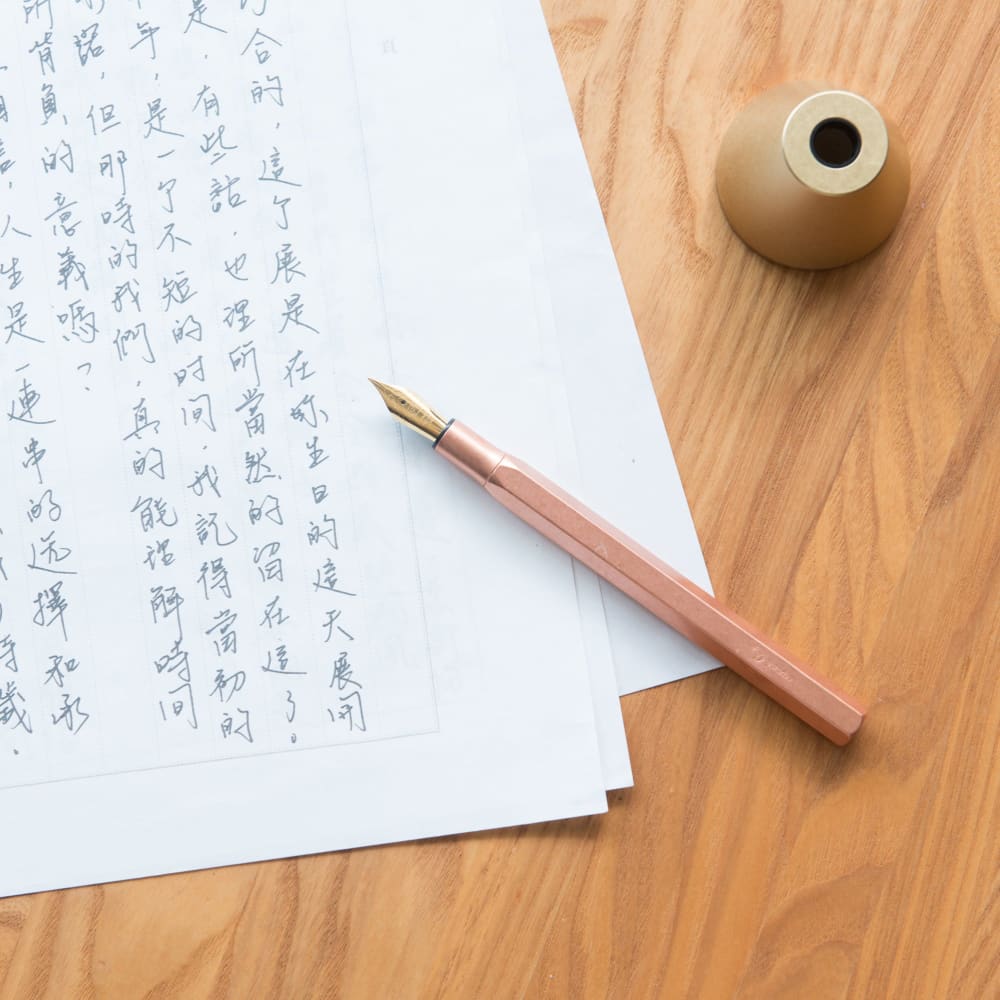 合的，這個展是在妳生日的這天展開
是，有些話，也理所當然的留在這了。
年，是一個不短的时间，我記得當初的
諾，但那時的我們，真的能理解時間
所背負的意義嗎？
人生是一連串的选擇和承